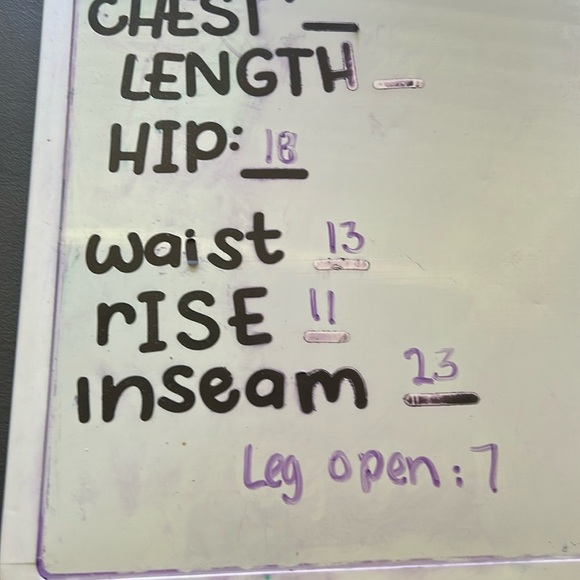 CHEST: __
LENGTH __
HIP: 18
waist 13
rISE 11
Inseam 23
Leg open: 7